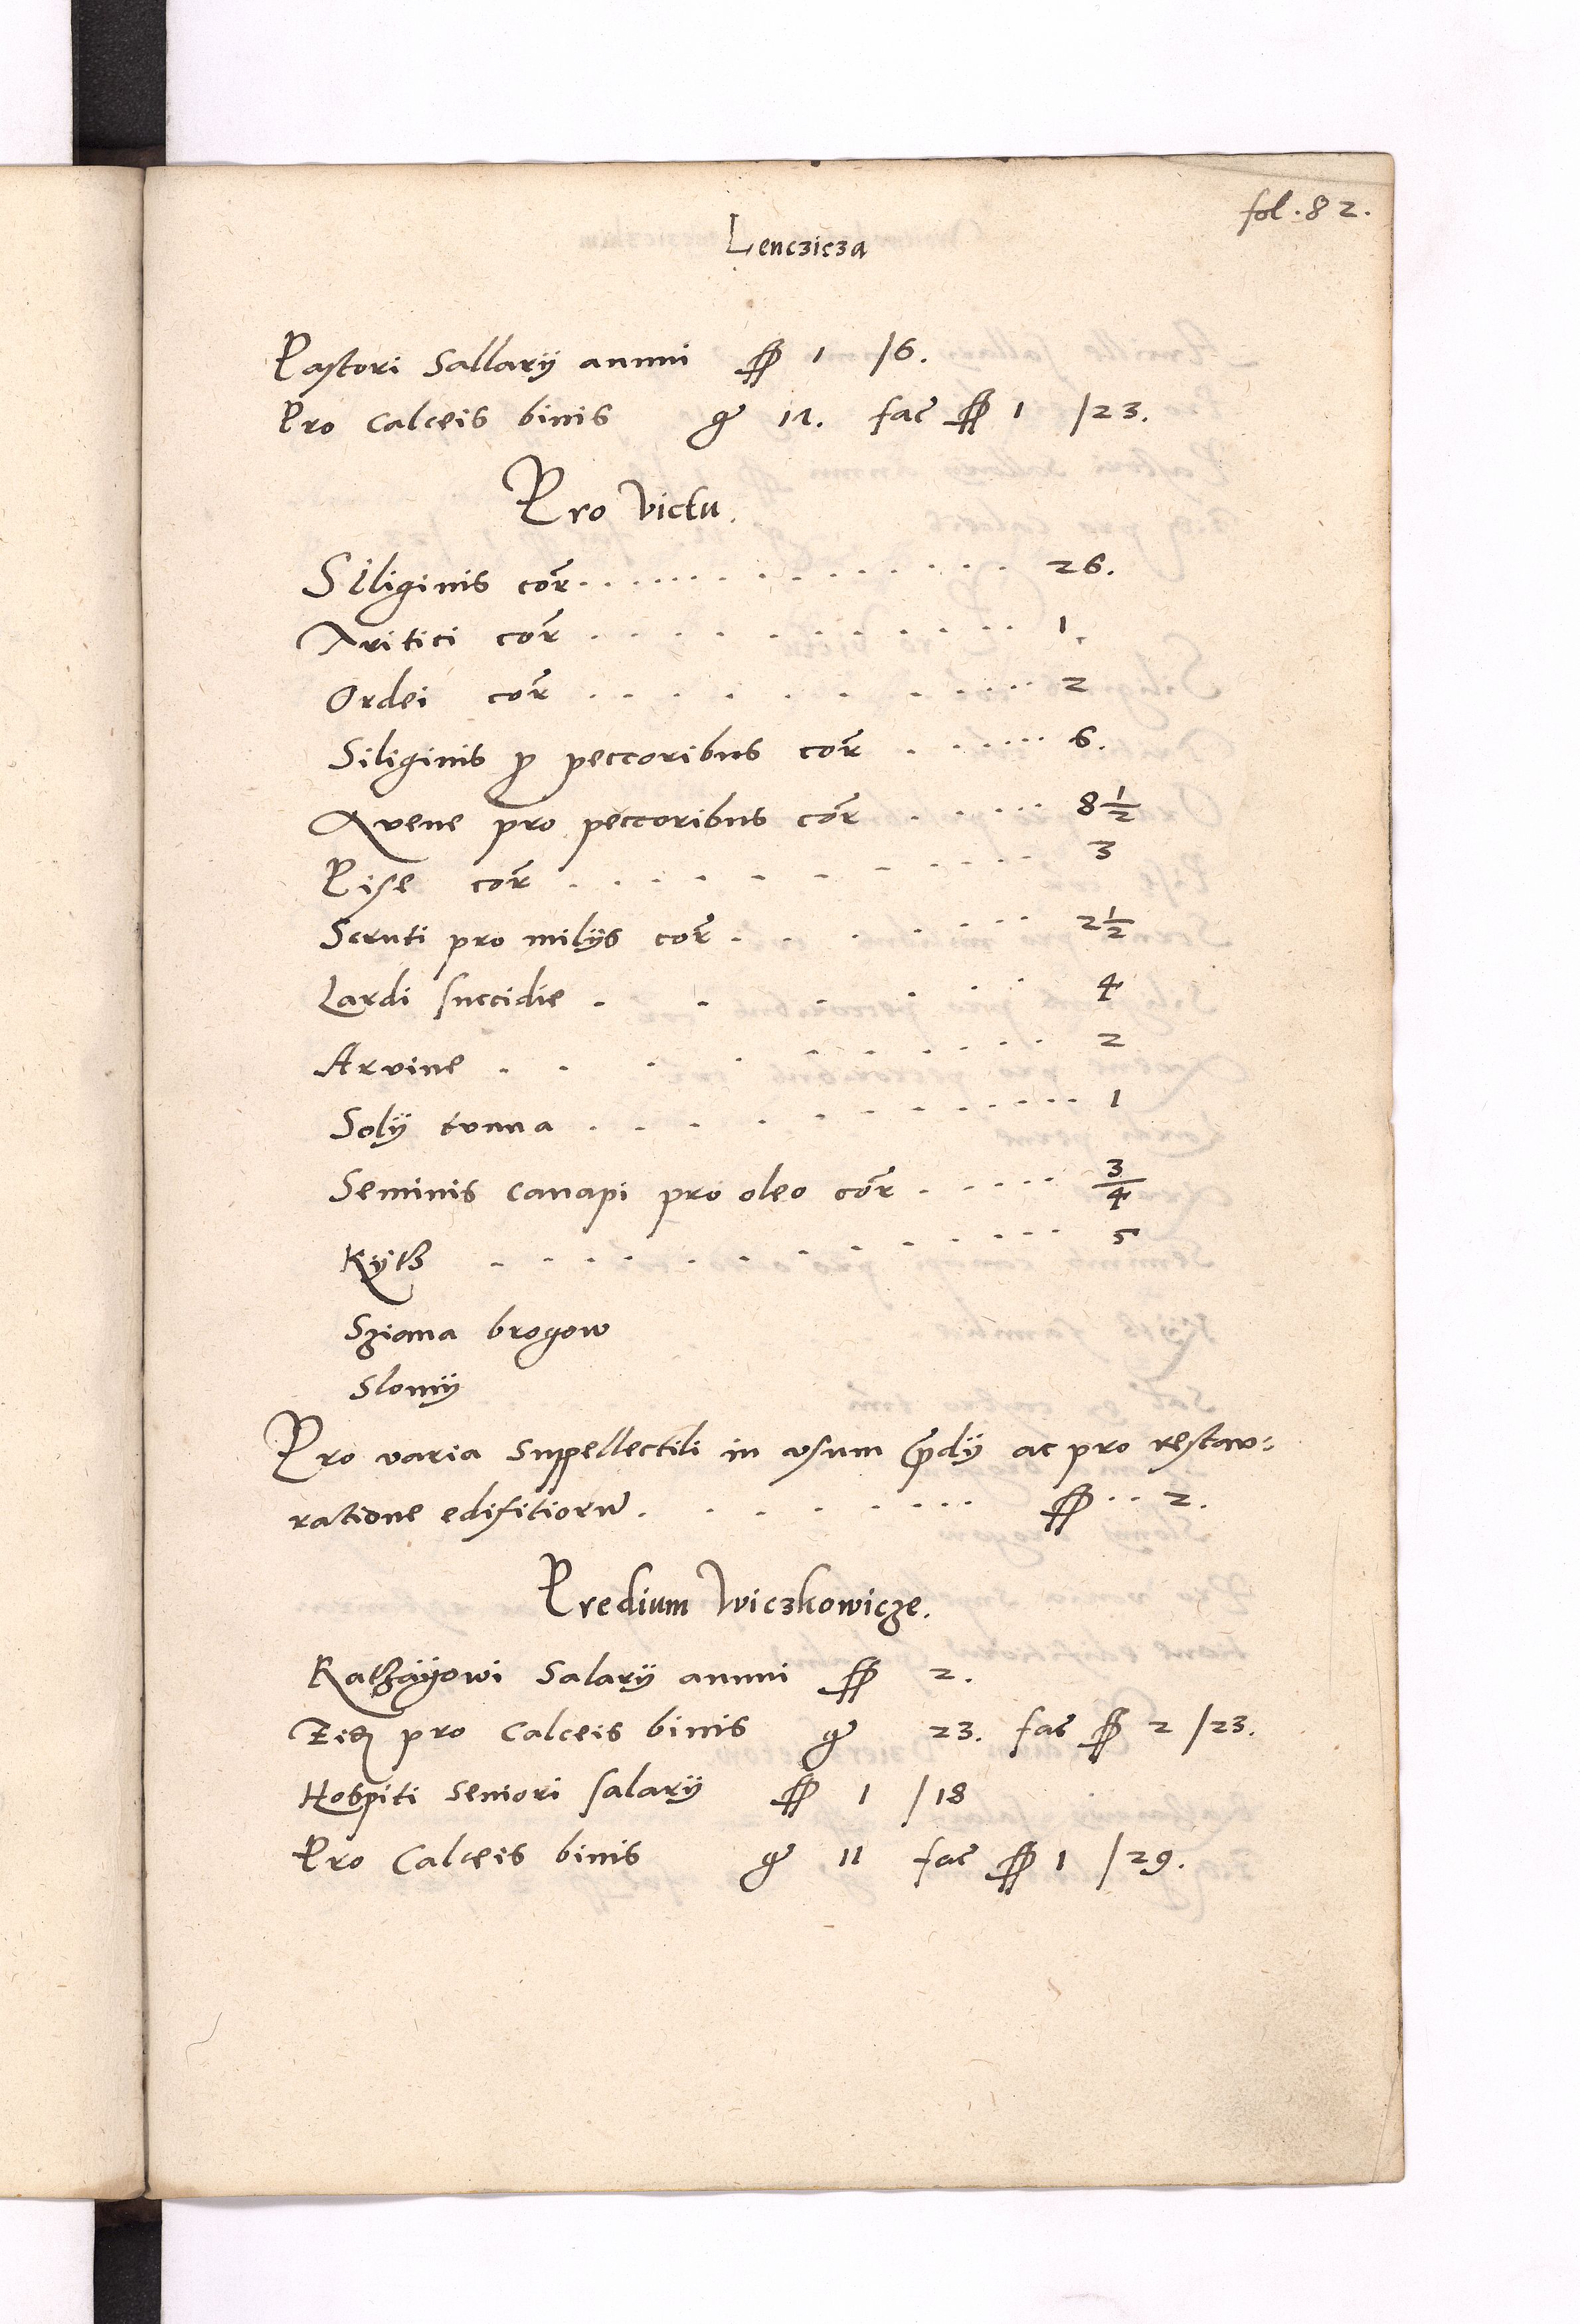 fol. 82.
Lenczicza
Pastori Sallarÿ annui ff 1 /6.
Pro Calceis binis gr 17. fac ff 1 /23.
Pro Victu.
Siliginis cor. . . . . . . . . . 26.
Tritici cor . . . . . . . . . . 1.
Ordei cor . . . . . . . . . . 2
Siliginis p peccoribus cor . . . . . . 6.
Avene pro peccoribus cor . . . . . 8 1/2
Pise cor . . . . . . . . . . 3
Scruti pro milÿs cor . . . . . . . 2 1/2
Lardi succidie . . . . . . 4
Arvine . . . . . . . . . . 2
Solÿ tunna . . . . . . . . . . 1
Seminis canapi pro oleo cor . . . . . 3/4
Kÿtß . . . . . . . . . . 5
Sziana brogow
Slomÿ
Pro varia Suppellectili in usum pdÿ ac pro restaw:
ratione edifitioru . . . . . . . . ff . . 2.
Predium Wiczkowicze.
Ratßaÿowi Salarÿ annui ff 2.
Eidem pro Calceis binis gr 23. fac ff 2 /23.
Hospiti Seniori salarÿ ff 1 /18
Pro Calceis binis gr 11 fac ff 1 /29.